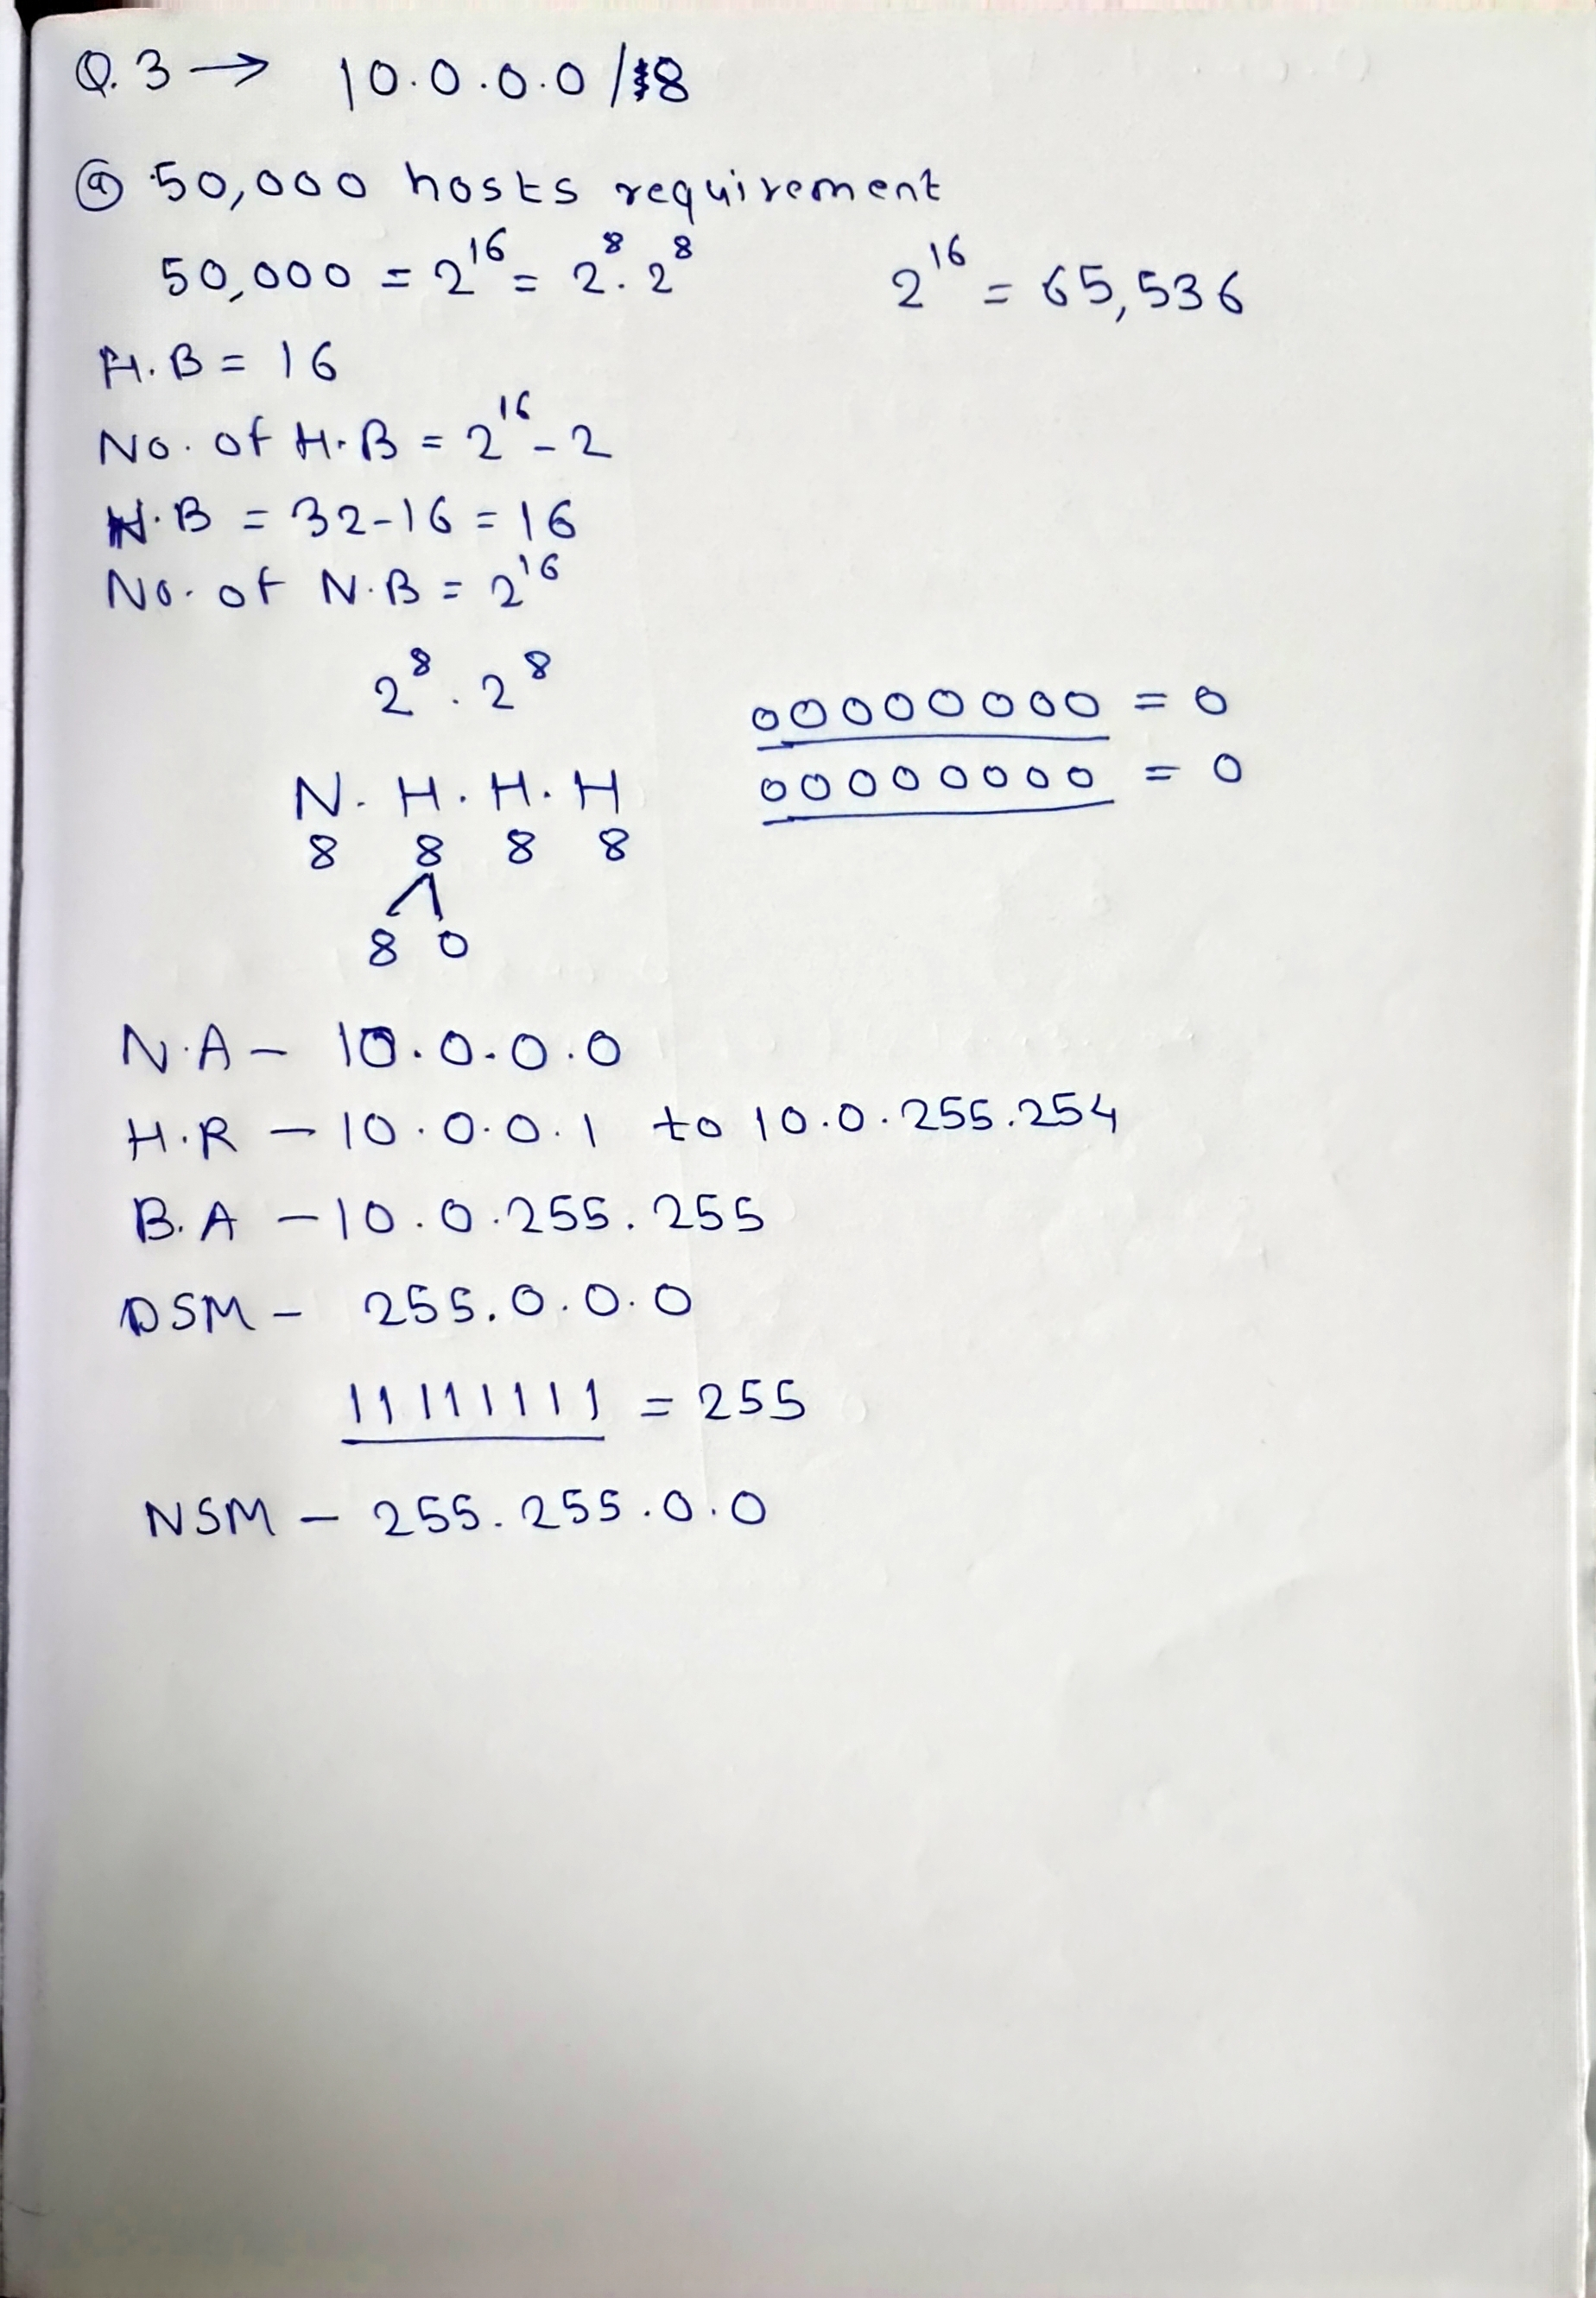 Q. 3 → 10.0.0.0/8
ⓐ 50,000 hosts requirement
50,000 = 2¹⁶ = 2⁸. 2⁸ 2¹⁶ = 65,536
H.B = 16
No. of H.B = 2¹⁶ - 2
N.B = 32-16 = 16
No. of N.B = 2¹⁶
2⁸ . 2⁸
00000000 = 0
00000000 = 0
N. H. H. H
8 8 8 8
8 0
N.A - 10.0.0.0
H.R - 10.0.0.1 to 10.0.255.254
B.A - 10.0.255.255
DSM - 255.0.0.0
11111111 = 255
NSM - 255.255.0.0